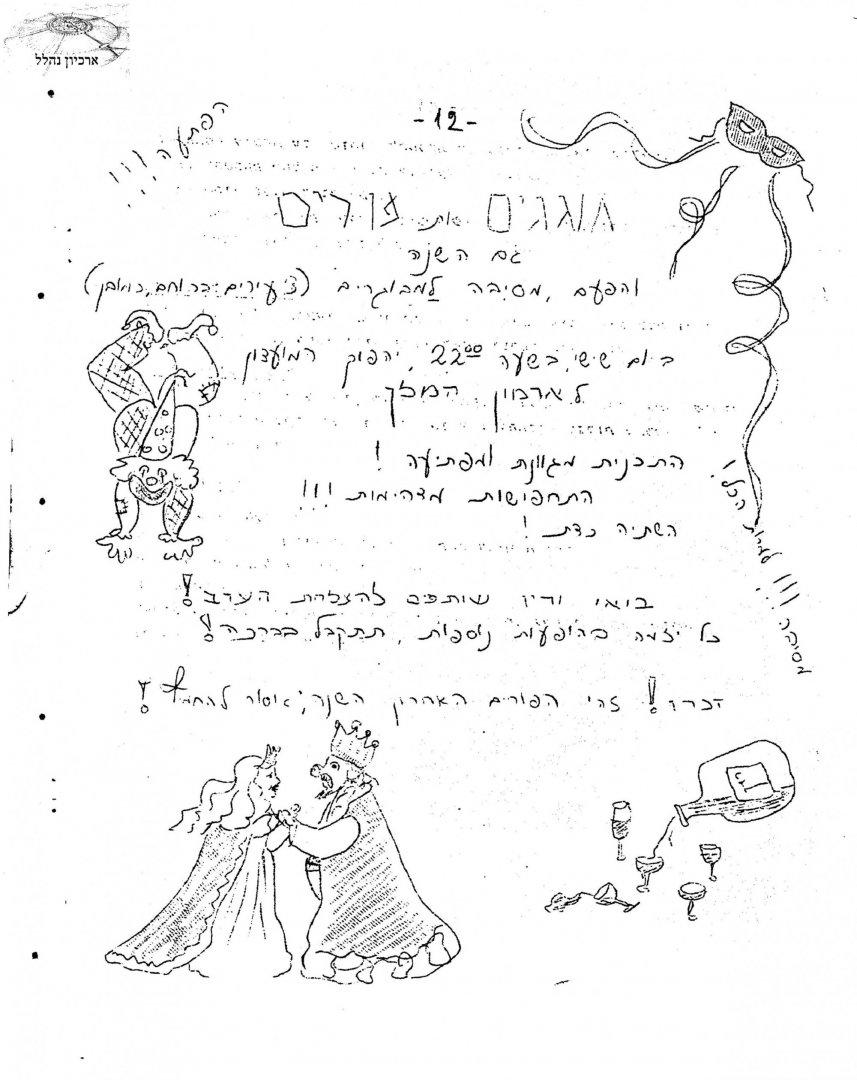 ארכיון נהלל
-12-
הפתעה!!!
חוגגים את פורים
גם השנה
והפעם, מסיבה למבוגרים (צעירים ברוחם, כמובן)
ביום שישי, בשעה 22:00, יהפוך המועדון
לארמון המלך
התכנית מגוונת ומפתיעה!
התחפושות מדהימות!!!
השתיה כדת!
בואי והיו שותפים להצלחת הערב!
כל יזמה בהופעות נוספות, תתקבל בברכה!
זכרו! זהי הפורים האחרון השנה; אסור להחמיץ!
מסיבה!!! למרות הכל!